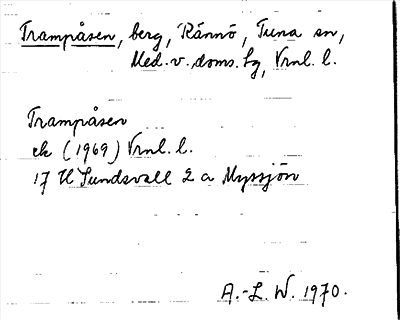 Trampåsen, berg, Rännö, Tuna sn,
Med. v. doms. tg, Vrnl. l.
Trampåsen
ek (1969) Vrnl. l.
17 H Sundsvall 2 a Myssjön
A.-L. W. 1970.